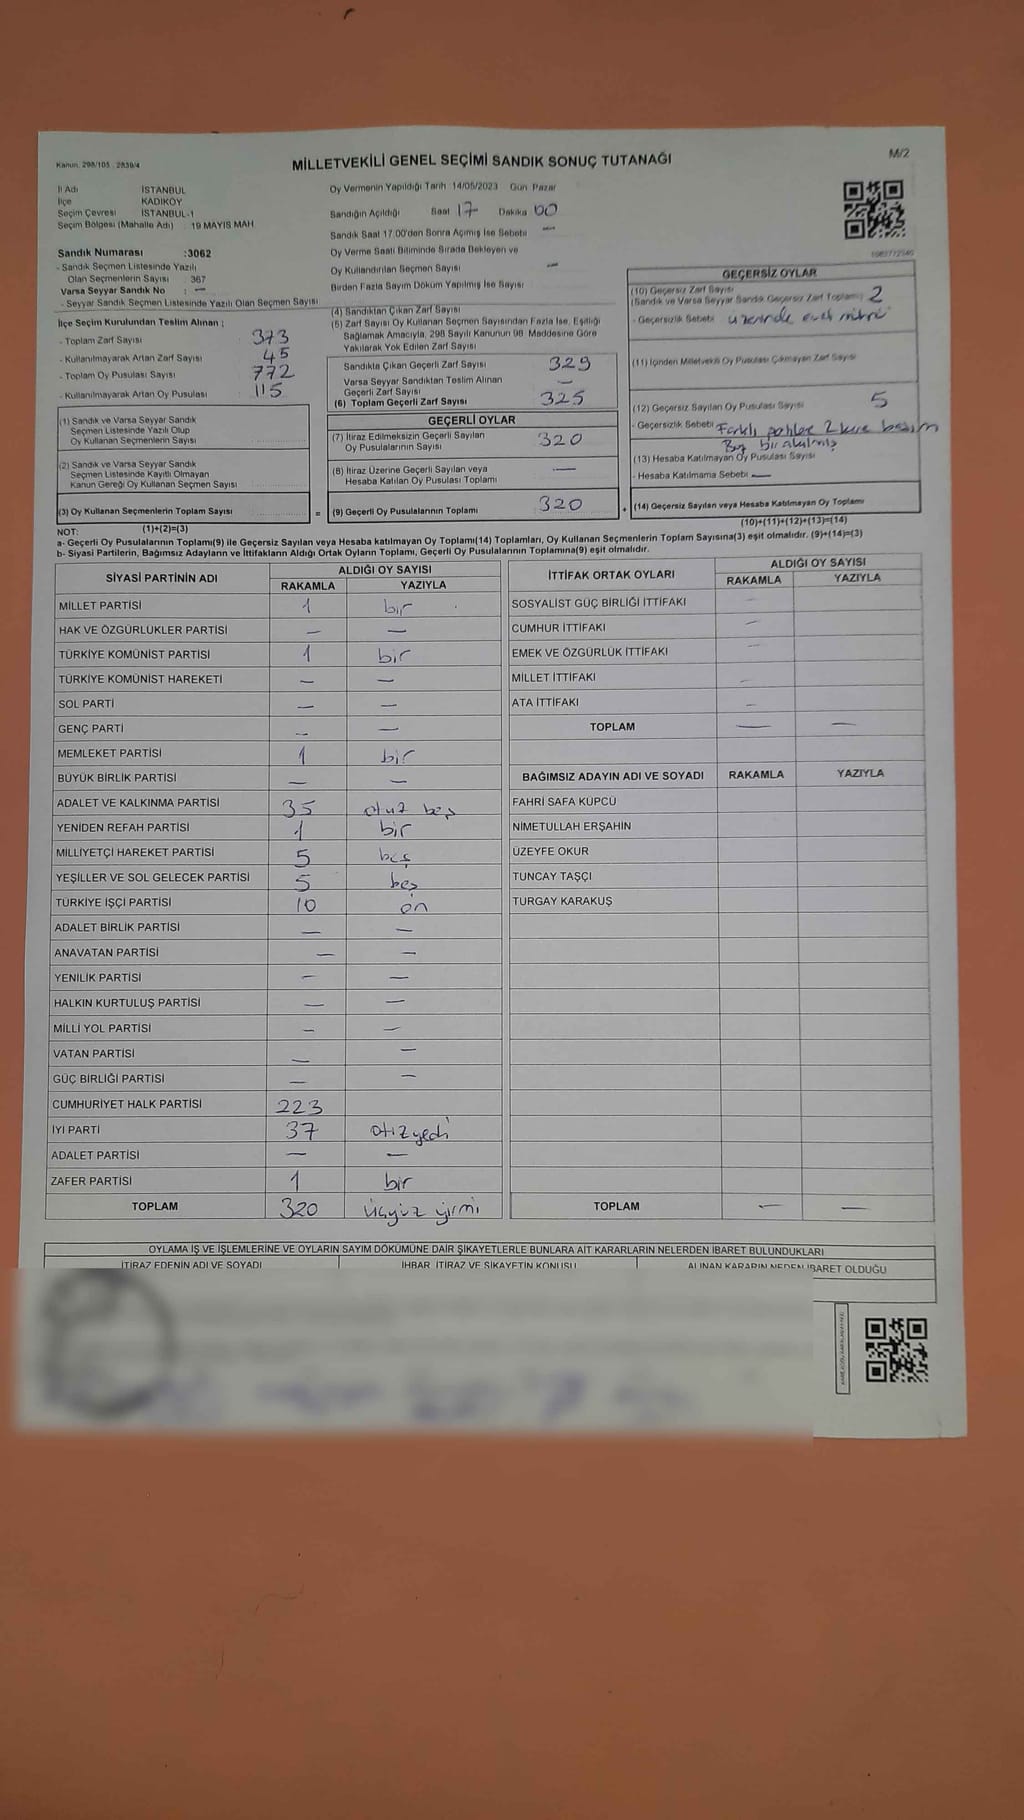 Kanun. 298/105 . 2839/4
MİLLETVEKİLİ GENEL SEÇİMİ SANDIK SONUÇ TUTANAĞI
M/2
İl Adı İSTANBUL
İlçe KADIKÖY
Seçim Çevresi İSTANBUL-1
Seçim Bölgesi (Mahalle Adı) : 19 MAYIS MAH
Oy Vermenin Yapıldığı Tarih 14/05/2023 Gün Pazar
Sandığın Açıldığı Saat 17 Dakika 00
Sandık Saat 17.00'den Sonra Açımış İse Sebebi —
Oy Verme Saati Bitiminde Sırada Bekleyen ve
Oy Kullandırılan Seçmen Sayısı —
Birden Fazla Sayım Döküm Yapılmış İse Sayısı
Sandık Numarası :3062
- Sandık Seçmen Listesinde Yazılı
Olan Seçmenlerin Sayısı : 367
Varsa Seyyar Sandık No : —
- Seyyar Sandık Seçmen Listesinde Yazılı Olan Seçmen Sayısı
İlçe Seçim Kurulundan Teslim Alınan ;
- Toplam Zarf Sayısı 373
- Kullanılmayarak Artan Zarf Sayısı 45
- Toplam Oy Pusulası Sayısı 772
- Kullanılmayarak Artan Oy Pusulası 115
(1) Sandık ve Varsa Seyyar Sandık
Seçmen Listesinde Yazılı Olup
Oy Kullanan Seçmenlerin Sayısı
(2) Sandık ve Varsa Seyyar Sandık
Seçmen Listesinde Kayıtlı Olmayan
Kanun Gereği Oy Kullanan Seçmen Sayısı
(3) Oy Kullanan Seçmenlerin Toplam Sayısı =
(1)+(2)=(3)
(4) Sandıktan Çıkan Zarf Sayısı
(5) Zarf Sayısı Oy Kullanan Seçmen Sayısından Fazla İse, Eşitliği
Sağlamak Amacıyla, 298 Sayılı Kanunun 98. Maddesine Göre
Yakılarak Yok Edilen Zarf Sayısı
Sandıkta Çıkan Geçerli Zarf Sayısı 329
Varsa Seyyar Sandıktan Teslim Alınan
Geçerli Zarf Sayısı —
(6) Toplam Geçerli Zarf Sayısı 325
GEÇERLİ OYLAR
(7) İtiraz Edilmeksizin Geçerli Sayılan
Oy Pusulalarının Sayısı 320
(8) İtiraz Üzerine Geçerli Sayılan veya
Hesaba Katılan Oy Pusulası Toplamı —
(9) Geçerli Oy Pusulalarının Toplamı 320 +
GEÇERSİZ OYLAR
(10) Geçersiz Zarf Sayısı
(Sandık ve Varsa Seyyar Sandık Geçersiz Zarf Toplamı) 2
- Geçersizlik Sebebi üzerinde evet mührü
(11) İçinden Milletvekili Oy Pusulası Çıkmayan Zarf Sayısı
(12) Geçersiz Sayılan Oy Pusulası Sayısı 5
- Geçersizlik Sebebi Farklı 2 kere basım
Boş bırakılmış
(13) Hesaba Katılmayan Oy Pusulası Sayısı
- Hesaba Katılmama Sebebi —
(14) Geçersiz Sayılan veya Hesaba Katılmayan Oy Toplamı
(10)+(11)+(12)+(13)=(14)
NOT:
a- Geçerli Oy Pusulalarının Toplamı(9) ile Geçersiz Sayılan veya Hesaba katılmayan Oy Toplamı(14) Toplamları, Oy Kullanan Seçmenlerin Toplam Sayısına(3) eşit olmalıdır. (9)+(14)=(3)
b- Siyasi Partilerin, Bağımsız Adayların ve İttifakların Aldığı Ortak Oyların Toplamı, Geçerli Oy Pusulalarının Toplamına(9) eşit olmalıdır.
SİYASİ PARTİNİN ADI ALDIĞI OY SAYISI
RAKAMLA YAZIYLA
MİLLET PARTİSİ 1 bir
HAK VE ÖZGÜRLÜKLER PARTİSİ — —
TÜRKİYE KOMÜNİST PARTİSİ 1 bir
TÜRKİYE KOMÜNİST HAREKETİ — —
SOL PARTİ — —
GENÇ PARTİ — —
MEMLEKET PARTİSİ 1 bir
BÜYÜK BİRLİK PARTİSİ — —
ADALET VE KALKINMA PARTİSİ 35 otuz beş
YENİDEN REFAH PARTİSİ 1 bir
MİLLİYETÇİ HAREKET PARTİSİ 5 beş
YEŞİLLER VE SOL GELECEK PARTİSİ 5 beş
TÜRKİYE İŞÇİ PARTİSİ 10 on
ADALET BİRLİK PARTİSİ — —
ANAVATAN PARTİSİ — —
YENİLİK PARTİSİ — —
HALKIN KURTULUŞ PARTİSİ — —
MİLLİ YOL PARTİSİ — —
VATAN PARTİSİ — —
GÜÇ BİRLİĞİ PARTİSİ — —
CUMHURİYET HALK PARTİSİ 223
İYİ PARTİ 37 otizyedi
ADALET PARTİSİ — —
ZAFER PARTİSİ 1 bir
TOPLAM 320 üçyüz yirmi
İTTİFAK ORTAK OYLARI ALDIĞI OY SAYISI
RAKAMLA YAZIYLA
SOSYALİST GÜÇ BİRLİĞİ İTTİFAKI —
CUMHUR İTTİFAKI —
EMEK VE ÖZGÜRLÜK İTTİFAKI —
MİLLET İTTİFAKI —
ATA İTTİFAKI —
TOPLAM — —
BAĞIMSIZ ADAYIN ADI VE SOYADI RAKAMLA YAZIYLA
FAHRİ SAFA KÜPCÜ
NİMETULLAH ERŞAHİN
ÜZEYFE OKUR
TUNCAY TAŞÇI
TURGAY KARAKUŞ
TOPLAM — —
OYLAMA İŞ VE İŞLEMLERİNE VE OYLARIN SAYIM DÖKÜMÜNE DAİR ŞİKAYETLERLE BUNLARA AİT KARARLARIN NELERDEN İBARET BULUNDUKLARI
İTİRAZ EDENİN ADI VE SOYADI İHBAR, İTİRAZ VE ŞİKAYETİN KONUSU ALINAN KARARIN NEDEN İBARET OLDUĞU